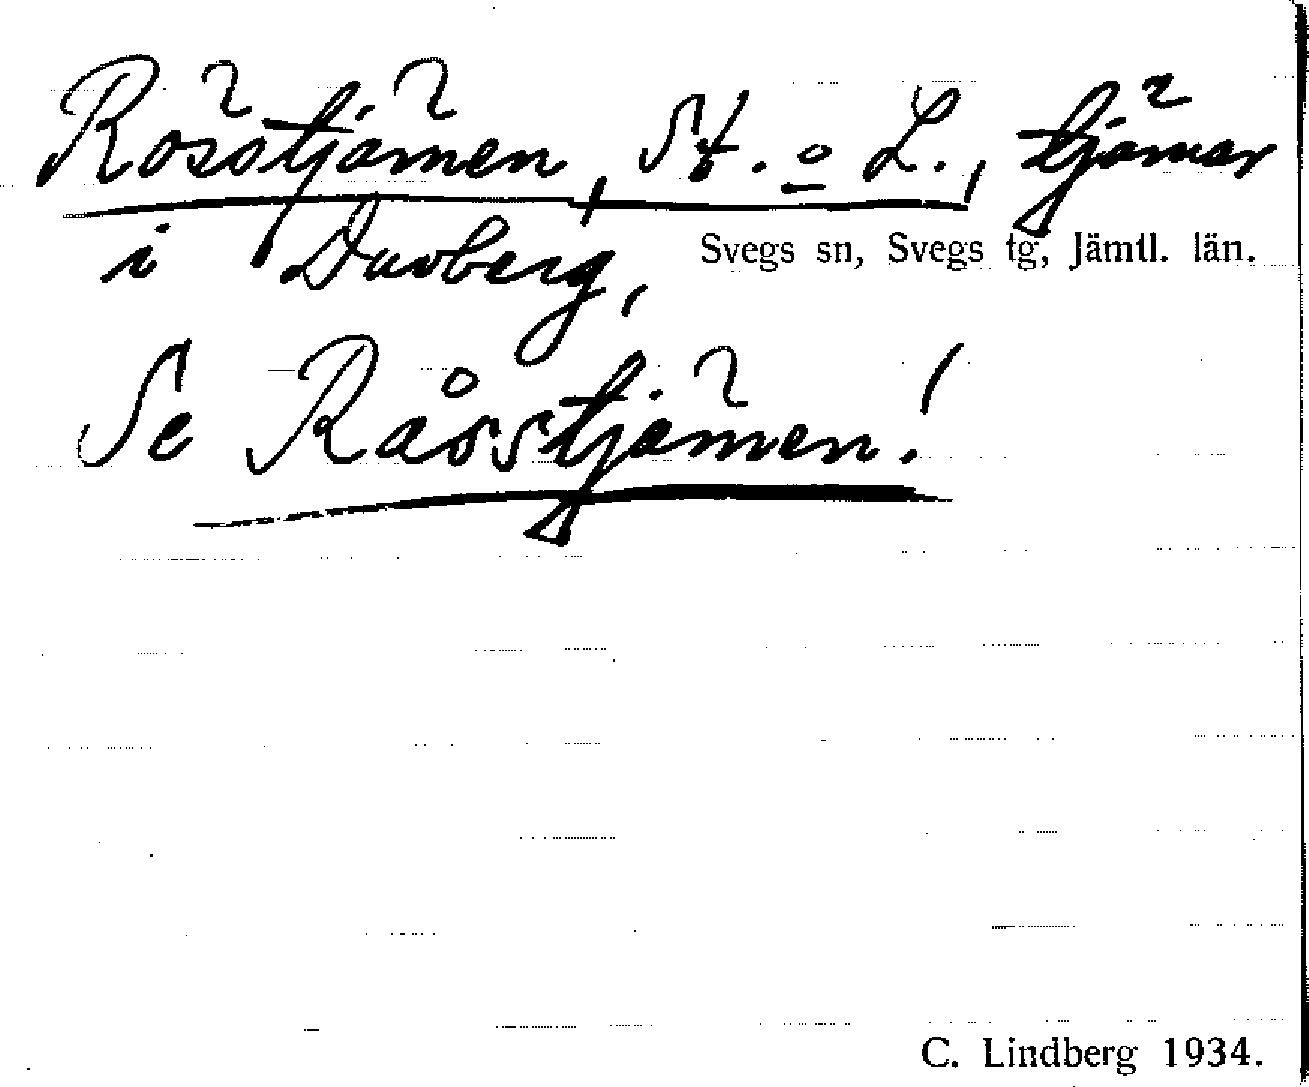 Rösstjärnen, St. o L., tjärnar
i Duvberg, Svegs sn, Svegs tg, Jämtl. län.
Se Råsstjärnen!
C. Lindberg 1934.